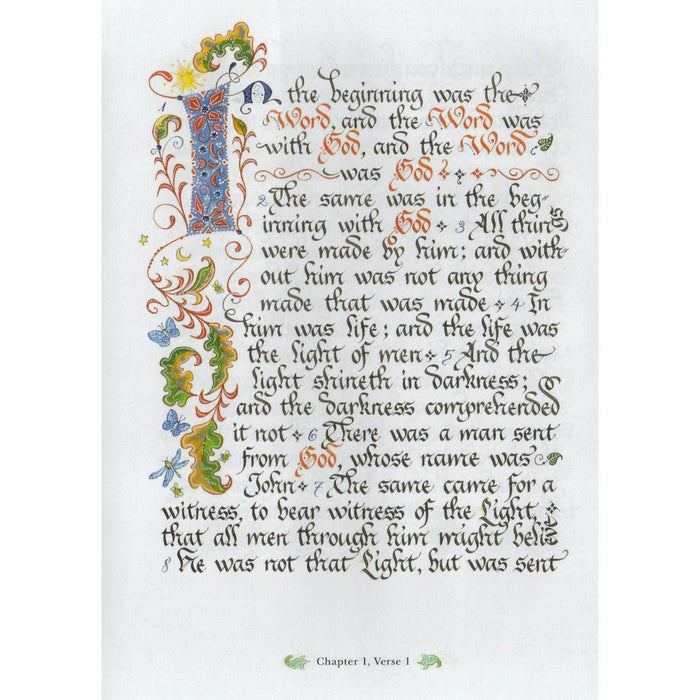 In the beginning was the
1 Word, and the Word was
with God, and the Word
was God
2 The same was in the beg-
inning with God 3 All things
were made by him; and with
out him was not any thing
made that was made 4 In
him was life; and the life was
the light of men 5 And the
light shineth in darkness;
and the darkness comprehended
it not 6 There was a man sent
from God, whose name was
John 7 The same came for a
witness, to bear witness of the Light,
that all men through him might believe
8 He was not that Light, but was sent
Chapter 1, Verse 1